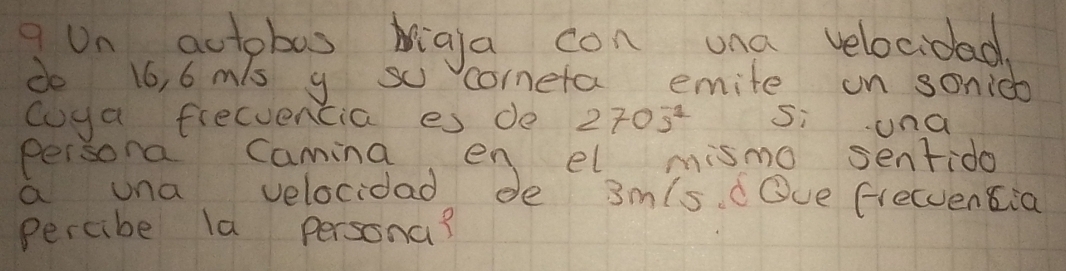 9 Un autobus viaja con una velocidad,
de 16,6 m/s y su corneta emite un sonido
cuya frecuencia es de 270 s⁻¹ Si una
persona camina en el mismo sentido
a una velocidad de 3m/s. ¿Que frecuencia
percibe la persona?